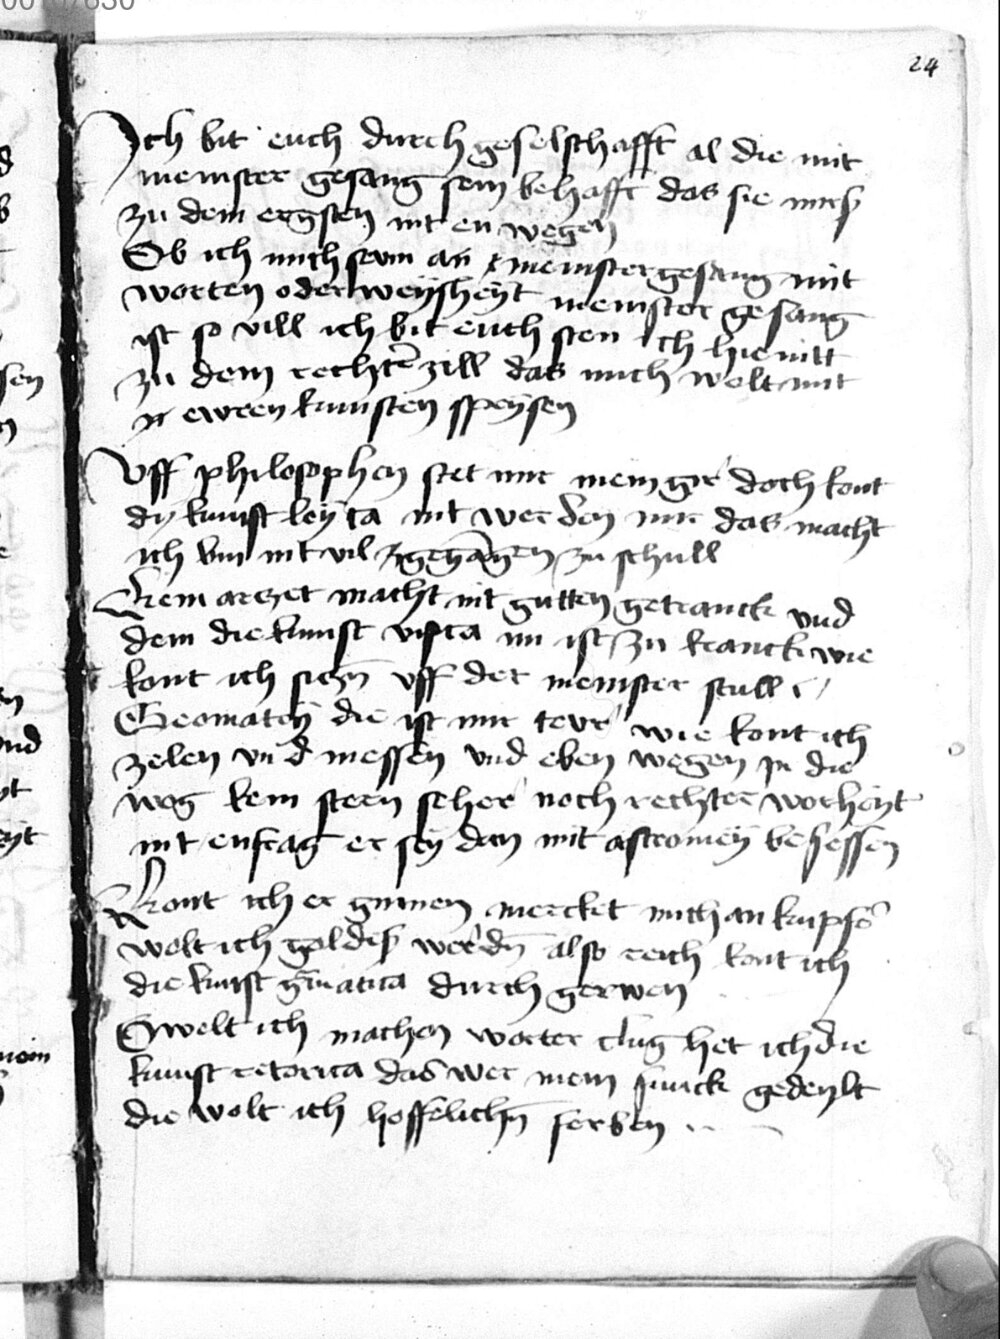 24
Ich bit euch durch geselschafft al die mit
meinster gesang sein behafft das sie mirs
zu dem ergsten nit en wegen
Ob ich mich seum an meinstergesang mit
worten oder weysheyt meinster gesang
ist so vill ich bit euch sten ich hie nitt
zu dem rechten zill das mich welt mit
ewren kunsten speysen
Uff philosophen stet mir mein gir doch kont
dy kunst leyca nit werden mir das macht
ich bin nit vil gegangen zu schull
Kein arczet macht nit gutten getranck und
dem die kunst visica im ist zu kranck wie
kont ich siczen uff der meinster stull
Geomatrey die ist mir teur wie kont ich
zelen und messen und eben wegen in die
wog kein stern seher noch rechter worheyt
nit enfrag er sey dan mit astromey besessen
Kont ich er grunen mercket mich an kupfer
wolt ich goldes werden also reich kont ich
die kunst gramatica durch gerwen
So welt ich machen worter clug het ich die
kunst retorica das wer mein gedeylt
die wolt ich hoffelichen ferben